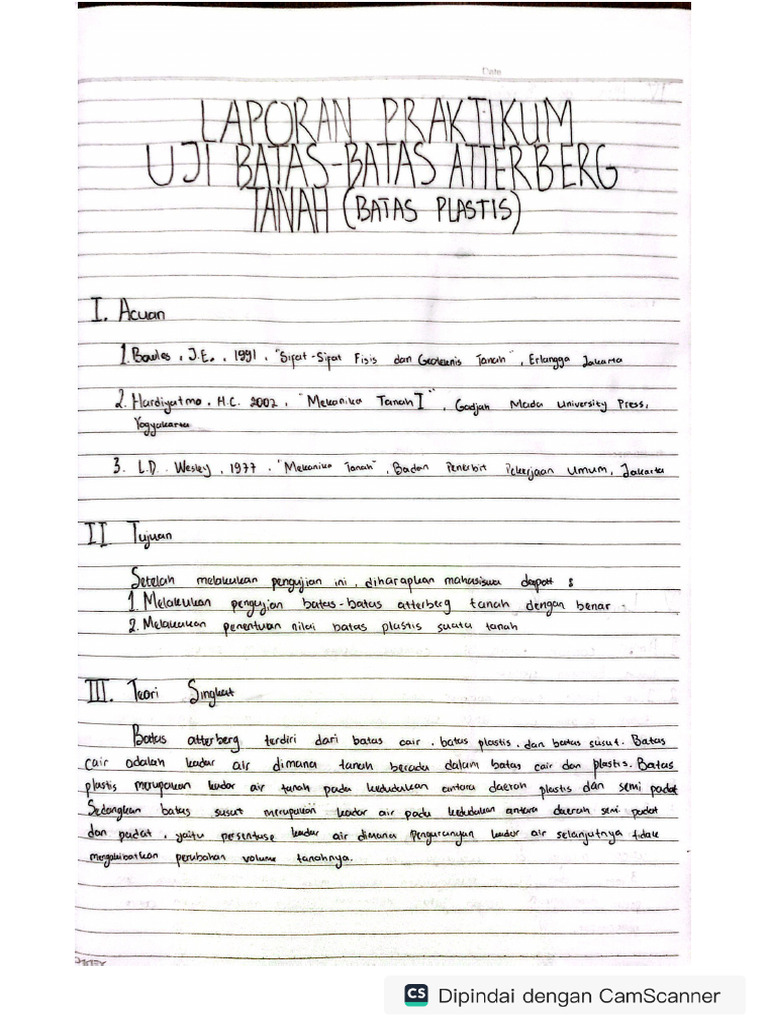 Date
LAPORAN PRAKTIKUM
UJI BATAS-BATAS ATTERBERG
TANAH (BATAS PLASTIS)
I. Acuan
1. Bowles, J.E., 1991, "Sifat-Sifat Fisis dan Geoteknis Tanah", Erlangga Jakarta
2. Hardiyatmo, H.C. 2002, "Mekanika Tanah I", Gadjah Mada University Press,
Yogyakarta
3. L.D. Wesley, 1977, "Mekanika Tanah", Badan Penerbit Pekerjaan Umum, Jakarta
II Tujuan
Setelah melakukan pengujian ini, diharapkan mahasiswa dapat :
1. Melakukan pengujian batas-batas atterberg tanah dengan benar
2. Melakukan penentuan nilai batas plastis suatu tanah
III. Teori Singkat
Batas atterberg terdiri dari batas cair, batas plastis, dan batas susut. Batas
cair adalah kadar air dimana tanah berada dalam batas cair dan plastis. Batas
plastis merupakan kadar air tanah pada kedudukan antara daerah plastis dan semi padat
Sedangkan batas susut merupakan kadar air pada kedudukan antara daerah semi padat
dan padat, yaitu presentase kadar air dimana pengurangan kadar air selanjutnya tidak
mengakibatkan perubahan volume tanahnya.
CS Dipindai dengan CamScanner